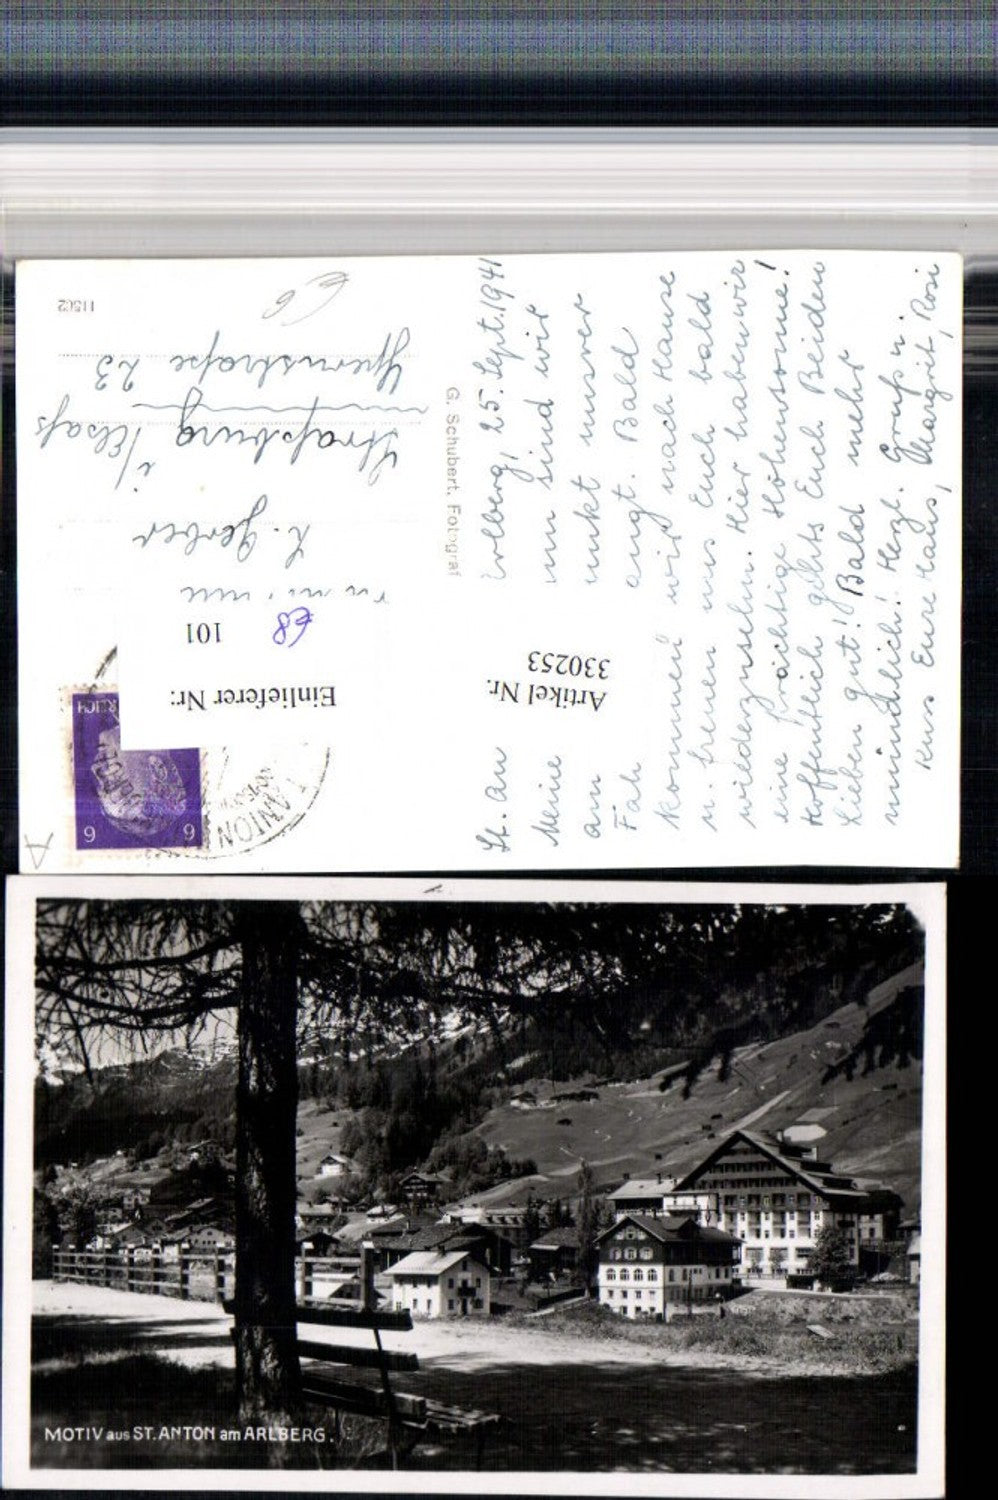 St. An
Arlberg, 25. Sept. 1941
Meine
nun sind wir
am
unkt unserer
Fah
angt. Bald
kommen wir nach Hause
u. freuen uns Euch bald
wiederzusehn. Hier haben wir
eine prächtige Höhensonne!
Hoffentlich gehts Euch Beiden
Lieben gut! Bald mehr
mündlich! Herzl. Gruß u.
Kuss Eure Hans, Margrit, Rosi
Artikel Nr.
330253
G. Schubert, Fotograf
Einlieferer Nr.
101
€8
REICH
6 6
ANTON
L. Gerber
Straßburg i/Elsaß
Ypernstraße 23
11562
€6
A
MOTIV aus ST. ANTON am ARLBERG.